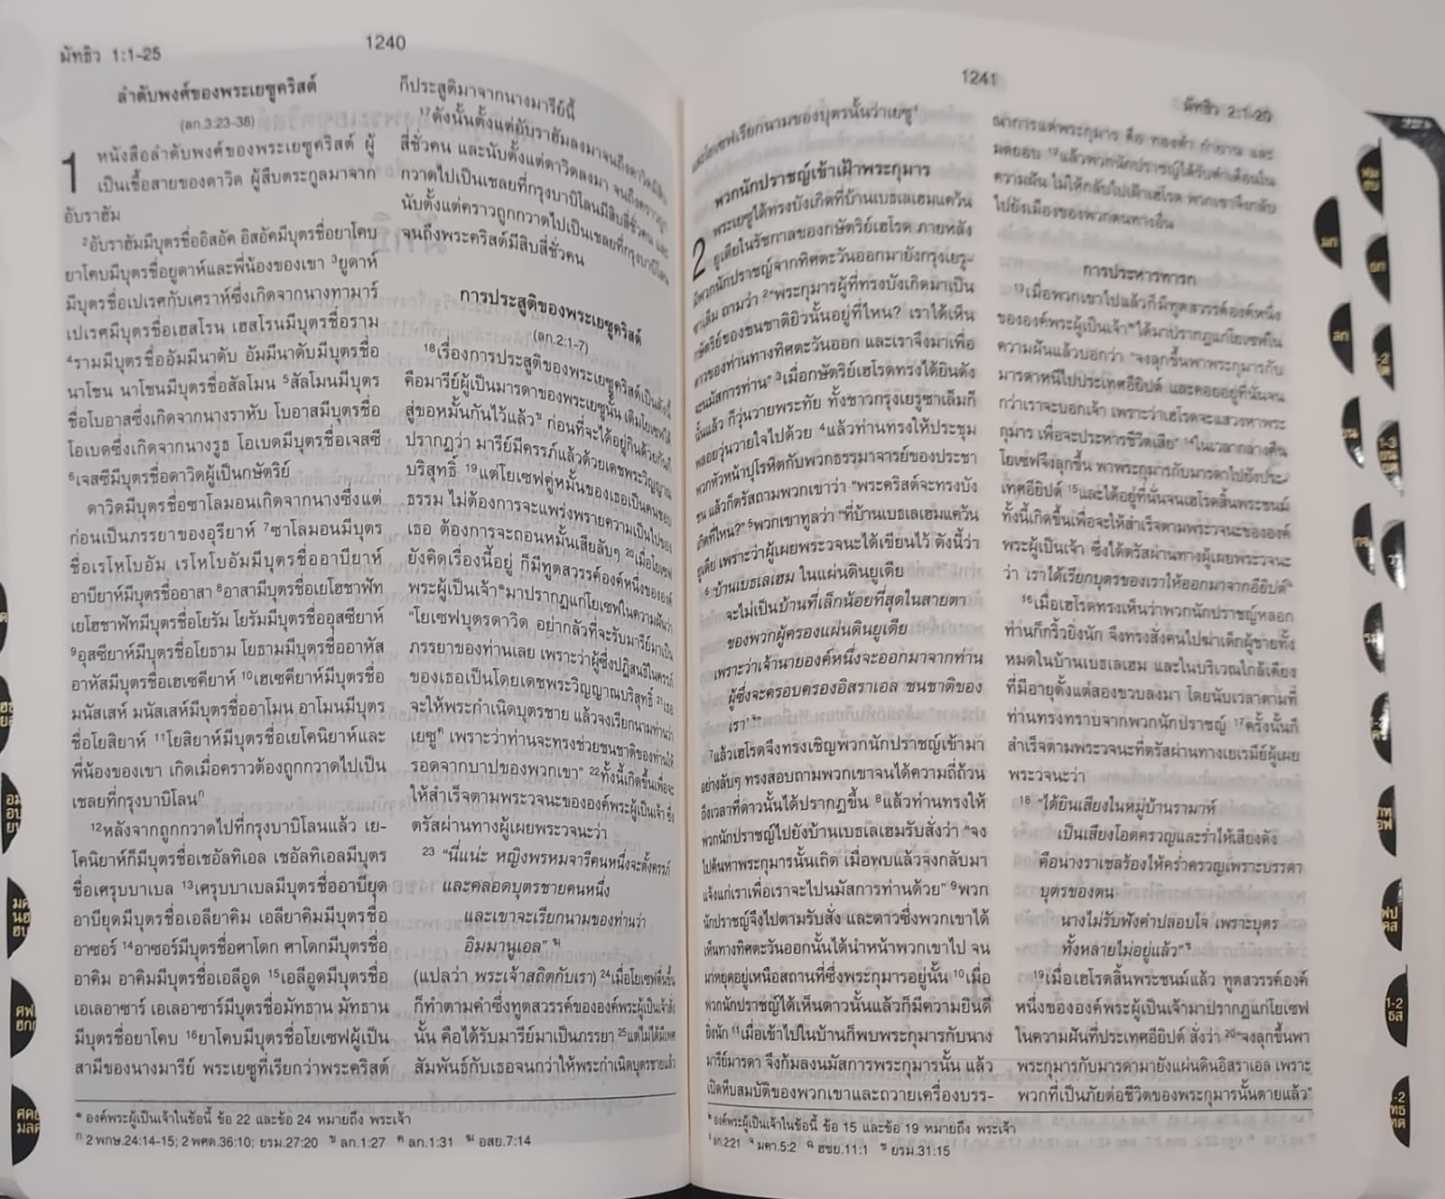 มัทธิว 1:1-25
1240
ลำดับพงศ์ของพระเยซูคริสต์
(ลก.3:23-38)
1 หนังสือลำดับพงศ์ของพระเยซูคริสต์ ผู้
เป็นเชื้อสายของดาวิด ผู้สืบตระกูลมาจาก
อับราฮัม
2อับราฮัมมีบุตรชื่ออิสอัค อิสอัคมีบุตรชื่อยาโคบ
ยาโคบมีบุตรชื่อยูดาห์และพี่น้องของเขา 3ยูดาห์
มีบุตรชื่อเปเรศกับเศราห์ซึ่งเกิดจากนางทามาร์
เปเรศมีบุตรชื่อเฮสโรน เฮสโรนมีบุตรชื่อราม
4รามมีบุตรชื่ออัมมีนาดับ อัมมีนาดับมีบุตรชื่อ
นาโชน นาโชนมีบุตรชื่อสัลโมน 5สัลโมนมีบุตร
ชื่อโบอาสซึ่งเกิดจากนางราหับ โบอาสมีบุตรชื่อ
โอเบดซึ่งเกิดจากนางรูธ โอเบดมีบุตรชื่อเจสซี
6เจสซีมีบุตรชื่อดาวิดผู้เป็นกษัตริย์
ดาวิดมีบุตรชื่อซาโลมอนเกิดจากนางซึ่งแต่
ก่อนเป็นภรรยาของอุรียาห์ 7ซาโลมอนมีบุตร
ชื่อเรโหโบอัม เรโหโบอัมมีบุตรชื่ออาบียาห์
อาบียาห์มีบุตรชื่ออาสา 8อาสามีบุตรชื่อเยโฮชาฟัท
เยโฮชาฟัทมีบุตรชื่อโยรัม โยรัมมีบุตรชื่ออุสซียาห์
9อุสซียาห์มีบุตรชื่อโยธาม โยธามมีบุตรชื่ออาหัส
อาหัสมีบุตรชื่อเฮเซคียาห์ 10เฮเซคียาห์มีบุตรชื่อ
มนัสเสห์ มนัสเสห์มีบุตรชื่ออาโมน อาโมนมีบุตร
ชื่อโยสิยาห์ 11โยสิยาห์มีบุตรชื่อเยโคนิยาห์และ
พี่น้องของเขา เกิดเมื่อคราวต้องถูกกวาดไปเป็น
เชลยที่กรุงบาบิโลนก
12หลังจากถูกกวาดไปที่กรุงบาบิโลนแล้ว เย-
โคนิยาห์ก็มีบุตรชื่อเชอัลทิเอล เชอัลทิเอลมีบุตร
ชื่อเศรุบบาเบล 13เศรุบบาเบลมีบุตรชื่ออาบียุด
อาบียุดมีบุตรชื่อเอลียาคิม เอลียาคิมมีบุตรชื่อ
อาซอร์ 14อาซอร์มีบุตรชื่อศาโดก ศาโดกมีบุตรชื่อ
อาคิม อาคิมมีบุตรชื่อเอลีอูด 15เอลีอูดมีบุตรชื่อ
เอเลอาซาร์ เอเลอาซาร์มีบุตรชื่อมัทธาน มัทธาน
มีบุตรชื่อยาโคบ 16ยาโคบมีบุตรชื่อโยเซฟผู้เป็น
สามีของนางมารีย์ พระเยซูที่เรียกว่าพระคริสต์
ก็ประสูติมาจากนางมารีย์นี้
17ดังนั้นตั้งแต่อับราฮัมลงมาจนถึงดาวิดมีสิบ
สี่ชั่วคน และนับตั้งแต่ดาวิดลงมา จนถึงคราวถูก
กวาดไปเป็นเชลยที่กรุงบาบิโลนมีสิบสี่ชั่วคน และ
นับตั้งแต่คราวถูกกวาดไปเป็นเชลยที่กรุงบาบิโลน
จนถึงพระคริสต์มีสิบสี่ชั่วคน
การประสูติของพระเยซูคริสต์
(ลก.2:1-7)
18เรื่องการประสูติของพระเยซูคริสต์เป็นดังนี้
คือมารีย์ผู้เป็นมารดาของพระเยซูนั้น เดิมโยเซฟได้
สู่ขอหมั้นกันไว้แล้วข ก่อนที่จะได้อยู่กินด้วยกันก็
ปรากฏว่า มารีย์มีครรภ์แล้วด้วยเดชพระวิญญาณ
บริสุทธิ์ 19แต่โยเซฟคู่หมั้นของเธอเป็นคนชอบ
ธรรม ไม่ต้องการจะแพร่งพรายความเป็นไปของ
เธอ ต้องการจะถอนหมั้นเสียลับๆ 20เมื่อโยเซฟ
ยังคิดเรื่องนี้อยู่ ก็มีทูตสวรรค์องค์หนึ่งขององค์
พระผู้เป็นเจ้า*มาปรากฏแก่โยเซฟในความฝันว่า
“โยเซฟบุตรดาวิด อย่ากลัวที่จะรับมารีย์มาเป็น
ภรรยาของท่านเลย เพราะว่าผู้ซึ่งปฏิสนธิในครรภ์
ของเธอเป็นโดยเดชพระวิญญาณบริสุทธิ์ 21เธอ
จะให้พระกำเนิดบุตรชาย แล้วจงเรียกนามท่านว่า
เยซูค เพราะว่าท่านจะทรงช่วยชนชาติของท่านให้
รอดจากบาปของพวกเขา” 22ทั้งนี้เกิดขึ้นเพื่อจะ
ให้สำเร็จตามพระวจนะขององค์พระผู้เป็นเจ้า ซึ่ง
ตรัสผ่านทางผู้เผยพระวจนะว่า
23 “นี่แน่ะ หญิงพรหมจารีคนหนึ่งจะตั้งครรภ์
และคลอดบุตรชายคนหนึ่ง
และเขาจะเรียกนามของท่านว่า
อิมมานูเอล” ฆ
(แปลว่า พระเจ้าสถิตกับเรา) 24เมื่อโยเซฟตื่นขึ้น
ก็ทำตามคำซึ่งทูตสวรรค์ขององค์พระผู้เป็นเจ้าสั่ง
นั้น คือได้รับมารีย์มาเป็นภรรยา 25แต่ไม่ได้มีเพศ
สัมพันธ์กับเธอจนกว่าให้พระกำเนิดบุตรชายแล้ว
* องค์พระผู้เป็นเจ้าในข้อนี้ ข้อ 22 และข้อ 24 หมายถึง พระเจ้า
ก 2 พกษ.24:14-15; 2 พศด.36:10; ยรม.27:20 ข ลก.1:27 ค ลก.1:31 ฆ อสย.7:14
1241
มัทธิว 2:1-20
และโยเซฟเรียกนามของบุตรนั้นว่าเยซู
พวกนักปราชญ์เข้าเฝ้าพระกุมาร
2 พระเยซูได้ทรงบังเกิดที่บ้านเบธเลเฮมแคว้น
ยูเดียในรัชกาลของกษัตริย์เฮโรด ภายหลัง
มีพวกนักปราชญ์จากทิศตะวันออกมายังกรุงเยรู-
ซาเล็ม ถามว่า 2“พระกุมารผู้ที่ทรงบังเกิดมาเป็น
กษัตริย์ของชนชาติยิวนั้นอยู่ที่ไหน? เราได้เห็น
ดาวของท่านทางทิศตะวันออก และเราจึงมาเพื่อ
จะนมัสการท่าน” 3เมื่อกษัตริย์เฮโรดทรงได้ยินดัง
นั้นแล้ว ก็วุ่นวายพระทัย ทั้งชาวกรุงเยรูซาเล็มก็
พลอยวุ่นวายใจไปด้วย 4แล้วท่านทรงให้ประชุม
พวกหัวหน้าปุโรหิตกับพวกธรรมาจารย์ของประชา
ชน แล้วก็ตรัสถามพวกเขาว่า “พระคริสต์จะทรงบัง
เกิดที่ไหน?” 5พวกเขาทูลว่า “ที่บ้านเบธเลเฮมแคว้น
ยูเดีย เพราะว่าผู้เผยพระวจนะได้เขียนไว้ ดังนี้ว่า
6 บ้านเบธเลเฮม ในแผ่นดินยูเดีย
จะไม่เป็นบ้านที่เล็กน้อยที่สุดในสายตา
ของพวกผู้ครองแผ่นดินยูเดีย
เพราะว่าเจ้านายองค์หนึ่งจะออกมาจากท่าน
ผู้ซึ่งจะครอบครองอิสราเอล ชนชาติของ
เรา’
7แล้วเฮโรดจึงทรงเชิญพวกนักปราชญ์เข้ามา
อย่างลับๆ ทรงสอบถามพวกเขาจนได้ความถี่ถ้วน
ถึงเวลาที่ดาวนั้นได้ปรากฏขึ้น 8แล้วท่านทรงให้
พวกนักปราชญ์ไปยังบ้านเบธเลเฮมรับสั่งว่า “จง
ไปค้นหาพระกุมารนั้นเถิด เมื่อพบแล้วจงกลับมา
แจ้งแก่เราเพื่อเราจะไปนมัสการท่านด้วย” 9พวก
นักปราชญ์จึงไปตามรับสั่ง และดาวซึ่งพวกเขาได้
เห็นทางทิศตะวันออกนั้นได้นำหน้าพวกเขาไป จน
มาหยุดอยู่เหนือสถานที่ซึ่งพระกุมารอยู่นั้น 10เมื่อ
พวกนักปราชญ์ได้เห็นดาวนั้นแล้วก็มีความยินดี
ยิ่งนัก 11เมื่อเข้าไปในบ้านก็พบพระกุมารกับนาง
มารีย์มารดา จึงก้มลงนมัสการพระกุมารนั้น แล้ว
เปิดหีบสมบัติของพวกเขาและถวายเครื่องบรร-
ณาการแด่พระกุมาร คือ ทองคำ กำยาน และ
มดยอบ 12แล้วพวกนักปราชญ์ได้รับคำเตือนใน
ความฝัน ไม่ให้กลับไปเฝ้าเฮโรด พวกเขาจึงกลับ
ไปยังเมืองของพวกตนทางอื่น
การประหารทารก
13เมื่อพวกเขาไปแล้วก็มีทูตสวรรค์องค์หนึ่ง
ขององค์พระผู้เป็นเจ้า*ได้มาปรากฏแก่โยเซฟใน
ความฝันแล้วบอกว่า “จงลุกขึ้นพาพระกุมารกับ
มารดาหนีไปประเทศอียิปต์ และคอยอยู่ที่นั่นจน
กว่าเราจะบอกเจ้า เพราะว่าเฮโรดจะแสวงหาพระ
กุมาร เพื่อจะประหารชีวิตเสีย” 14ในเวลากลางคืน
โยเซฟจึงลุกขึ้น พาพระกุมารกับมารดาไปยังประ-
เทศอียิปต์ 15และได้อยู่ที่นั่นจนเฮโรดสิ้นพระชนม์
ทั้งนี้เกิดขึ้นเพื่อจะให้สำเร็จตามพระวจนะขององค์
พระผู้เป็นเจ้า ซึ่งได้ตรัสผ่านทางผู้เผยพระวจนะ
ว่า เราได้เรียกบุตรของเราให้ออกมาจากอียิปต์
16เมื่อเฮโรดทรงเห็นว่าพวกนักปราชญ์หลอก
ท่านก็กริ้วยิ่งนัก จึงทรงสั่งคนไปฆ่าเด็กผู้ชายทั้ง
หมดในบ้านเบธเลเฮม และในบริเวณใกล้เคียง
ที่มีอายุตั้งแต่สองขวบลงมา โดยนับเวลาตามที่
ท่านทรงทราบจากพวกนักปราชญ์ 17ครั้งนั้นก็
สำเร็จตามพระวจนะที่ตรัสผ่านทางเยเรมีย์ผู้เผย
พระวจนะว่า
18 “ได้ยินเสียงในหมู่บ้านรามาห์
เป็นเสียงโอดครวญและร่ำไห้เสียงดัง
คือนางราเชลร้องไห้คร่ำครวญเพราะบรรดา
บุตรของตน
นางไม่รับฟังคำปลอบใจ เพราะบุตร
ทั้งหลายไม่อยู่แล้ว”
19เมื่อเฮโรดสิ้นพระชนม์แล้ว ทูตสวรรค์องค์
หนึ่งขององค์พระผู้เป็นเจ้ามาปรากฏแก่โยเซฟ
ในความฝันที่ประเทศอียิปต์ สั่งว่า 20“จงลุกขึ้นพา
พระกุมารกับมารดามายังแผ่นดินอิสราเอล เพราะ
พวกที่เป็นภัยต่อชีวิตของพระกุมารนั้นตายแล้ว”
* องค์พระผู้เป็นเจ้าในข้อนี้ ข้อ 15 และข้อ 19 หมายถึง พระเจ้า
ง ลก.221 จ มคา.5:2 ฉ ฮชย.11:1 ช ยรม.31:15
มก
ลก
1-2
1-3
1-2